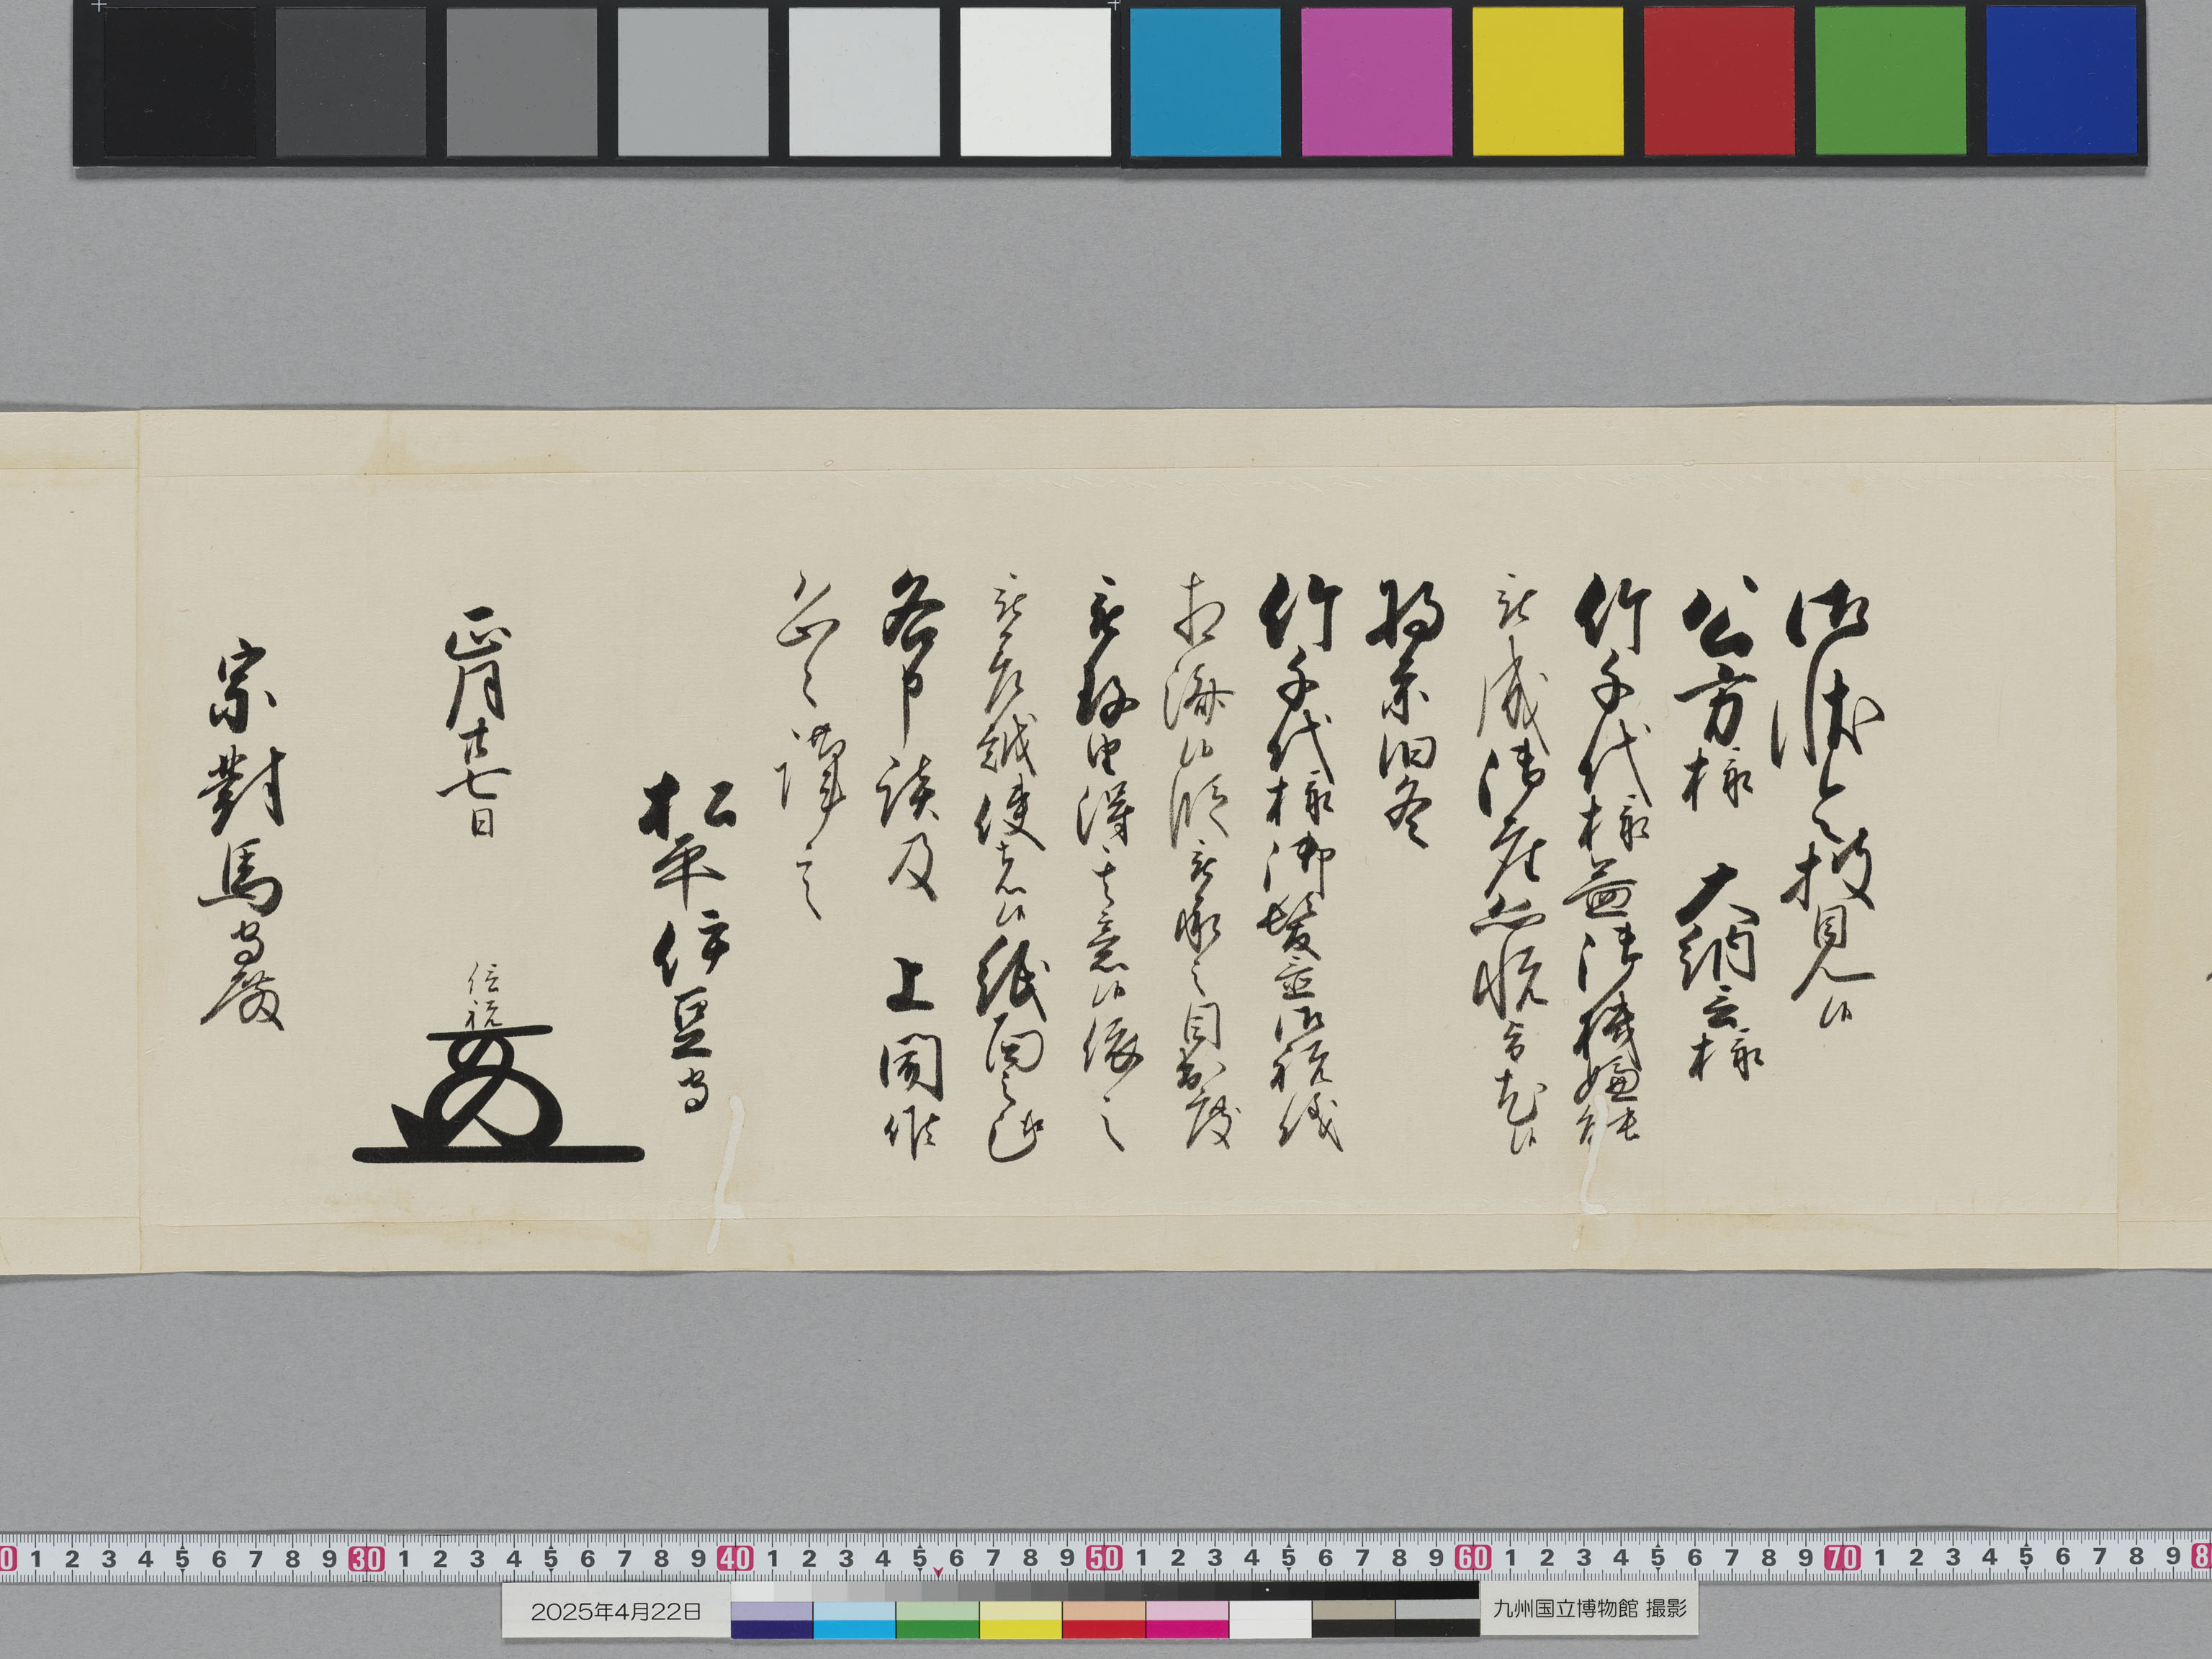 御状令披見候
公方様　大納言様
竹千代様益御機嫌能
被成御座恐悦旨尤候
将亦旧冬
竹千代様御髪置御祝儀
相済候段被承之目出度
被由得其意候依之
被差越使者候紙面之趣
各申談及　上聞候
恐々謹言
松平伊豆守
正月廿七日　信祝
宗對馬守殿
0 1 2 3 4 5 6 7 8 9 30 1 2 3 4 5 6 7 8 9 40 1 2 3 4 5 6 7 8 9 50 1 2 3 4 5 6 7 8 9 60 1 2 3 4 5 6 7 8 9 70 1 2 3 4 5 6 7 8 9 8
2025年4月22日
九州国立博物館 撮影